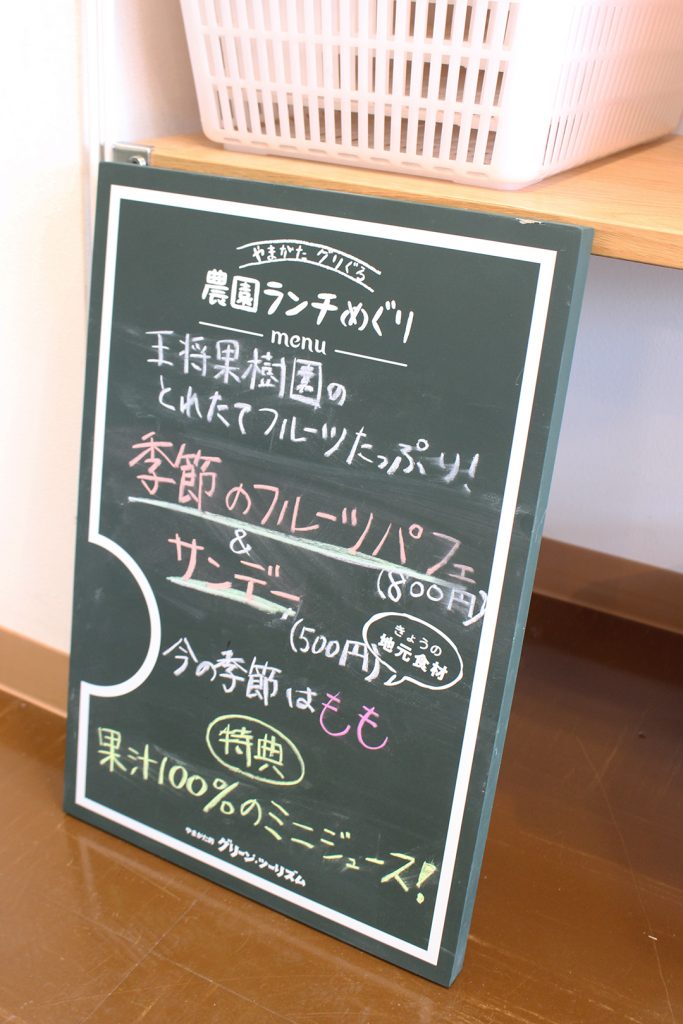 やまがた グリぐる
農園ランチめぐり
menu
王将果樹園の
とれたてフルーツたっぷり!
季節のフルーツパフェ
&
(800円)
サンデー
(500円)
きょうの
地元食材
今の季節はもも
特典
果汁100%のミニジュース!
やまがた的 グリーン・ツーリズム